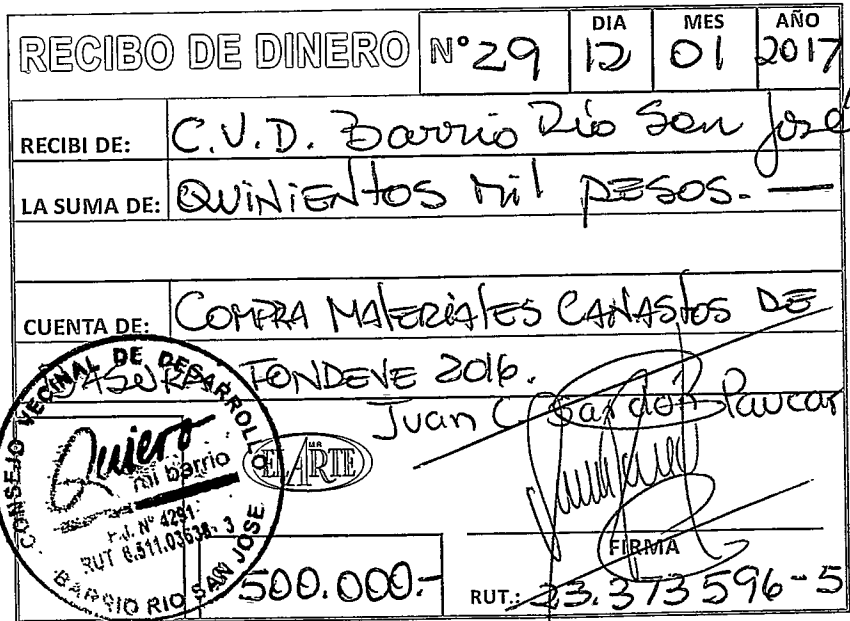 RECIBO DE DINERO N° 29 DIA 12 MES 01 AÑO 2017
RECIBI DE: C.V.D. Barrio Río San José
LA SUMA DE: QUINIENTOS Mil PESOS.—
CUENTA DE: COMPRA MATERIALES CANASTOS DE
BASURA FONDEVE 2016.
Juan C Gardon Paucar
CONSEJO VECINAL DE DESARROLLO
Quiero
mi barrio
P.J. N° 4291
RUT 6.511.03638-3
BARRIO RIO SAN JOSE
EL ARTE MR
FIRMA
500.000.-
RUT.: 23.373596-5